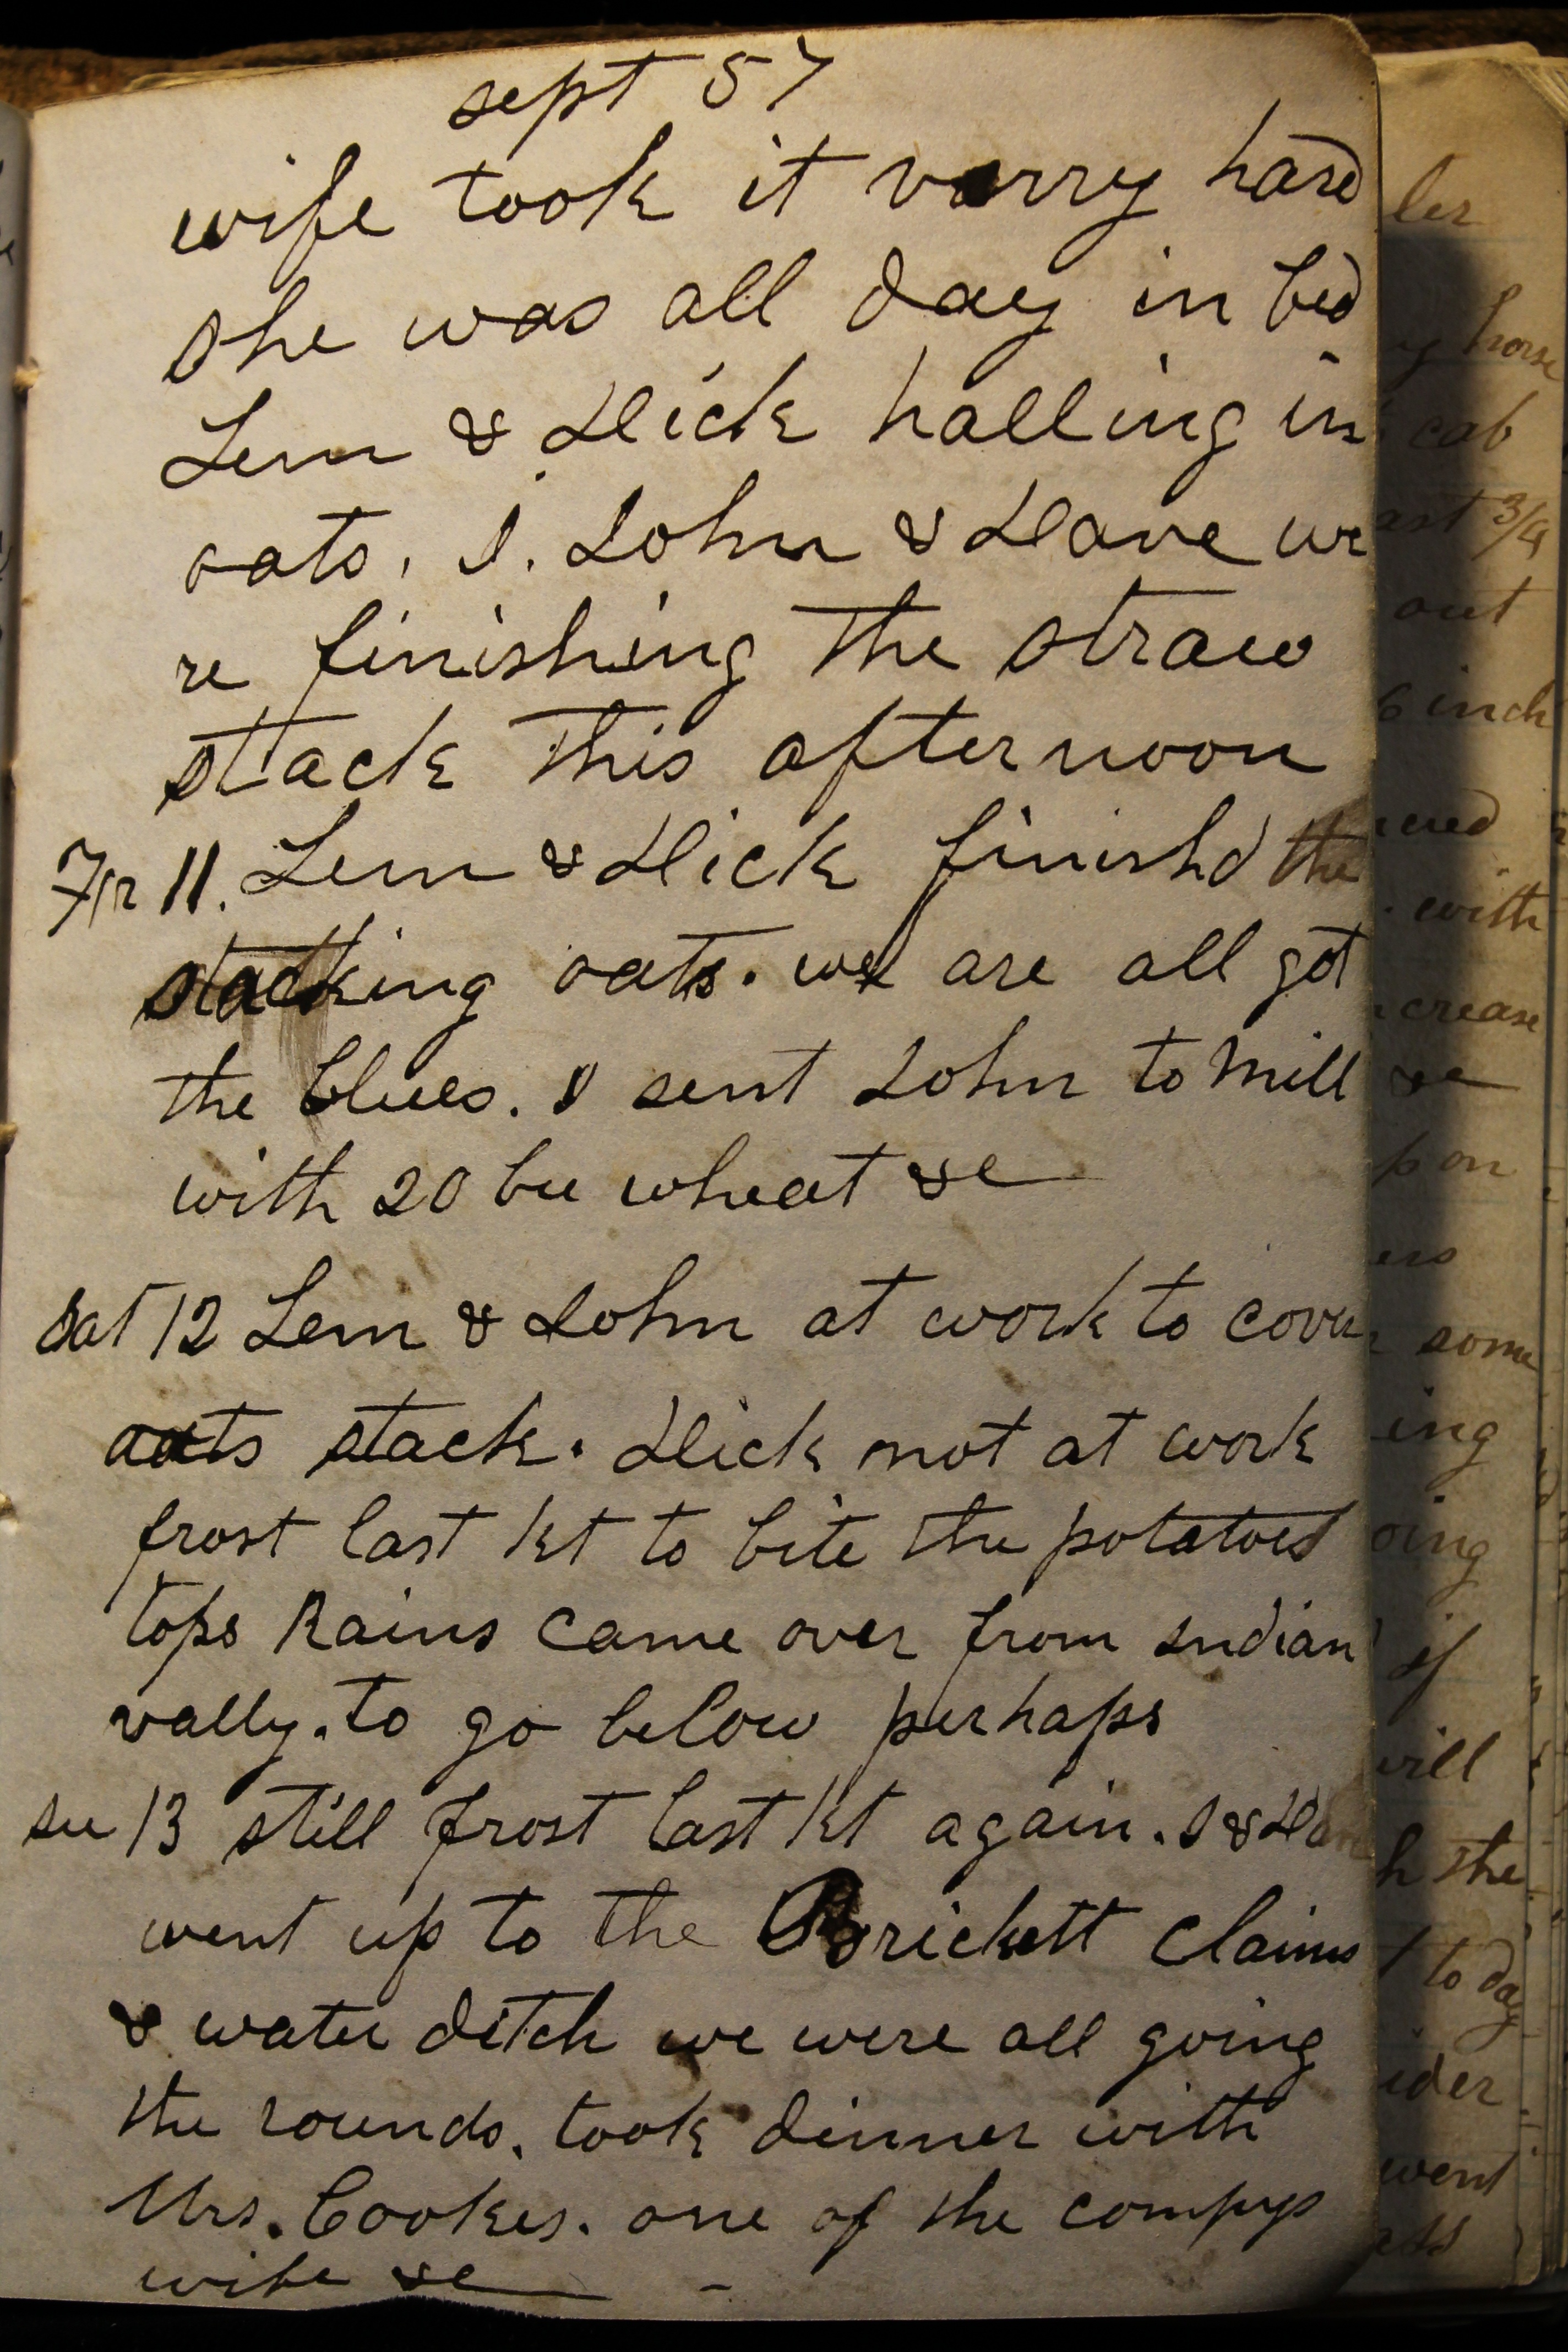 sept 57
wife took it varry hard
she was all day in bed
Lem & Dick halling in
oats, I. John & Dave we
re finishing the straw
stack this afternoon
Fri 11. Lem & Dick finishd the
stacking oats. we are all got
the blues. I sent John to mill
with 20 bu wheat &c
Sat 12 Lem & John at work to cover
oats stack. Dick not at work
frost last Nt to bite the potatoes
tops Rains came over from Indian
vally. to go below perhaps
Su 13 still frost last Nt again. I & Dave
went up to the Brickett claims
& water ditch we were all going
the rounds. took dinner with
Mrs. Cookes. one of the compys
wife &c
ler
horse
cab
3/4
out
6 inch
with
crease
&c
on
some
ing
oing
if
will
the
to day
ider
went